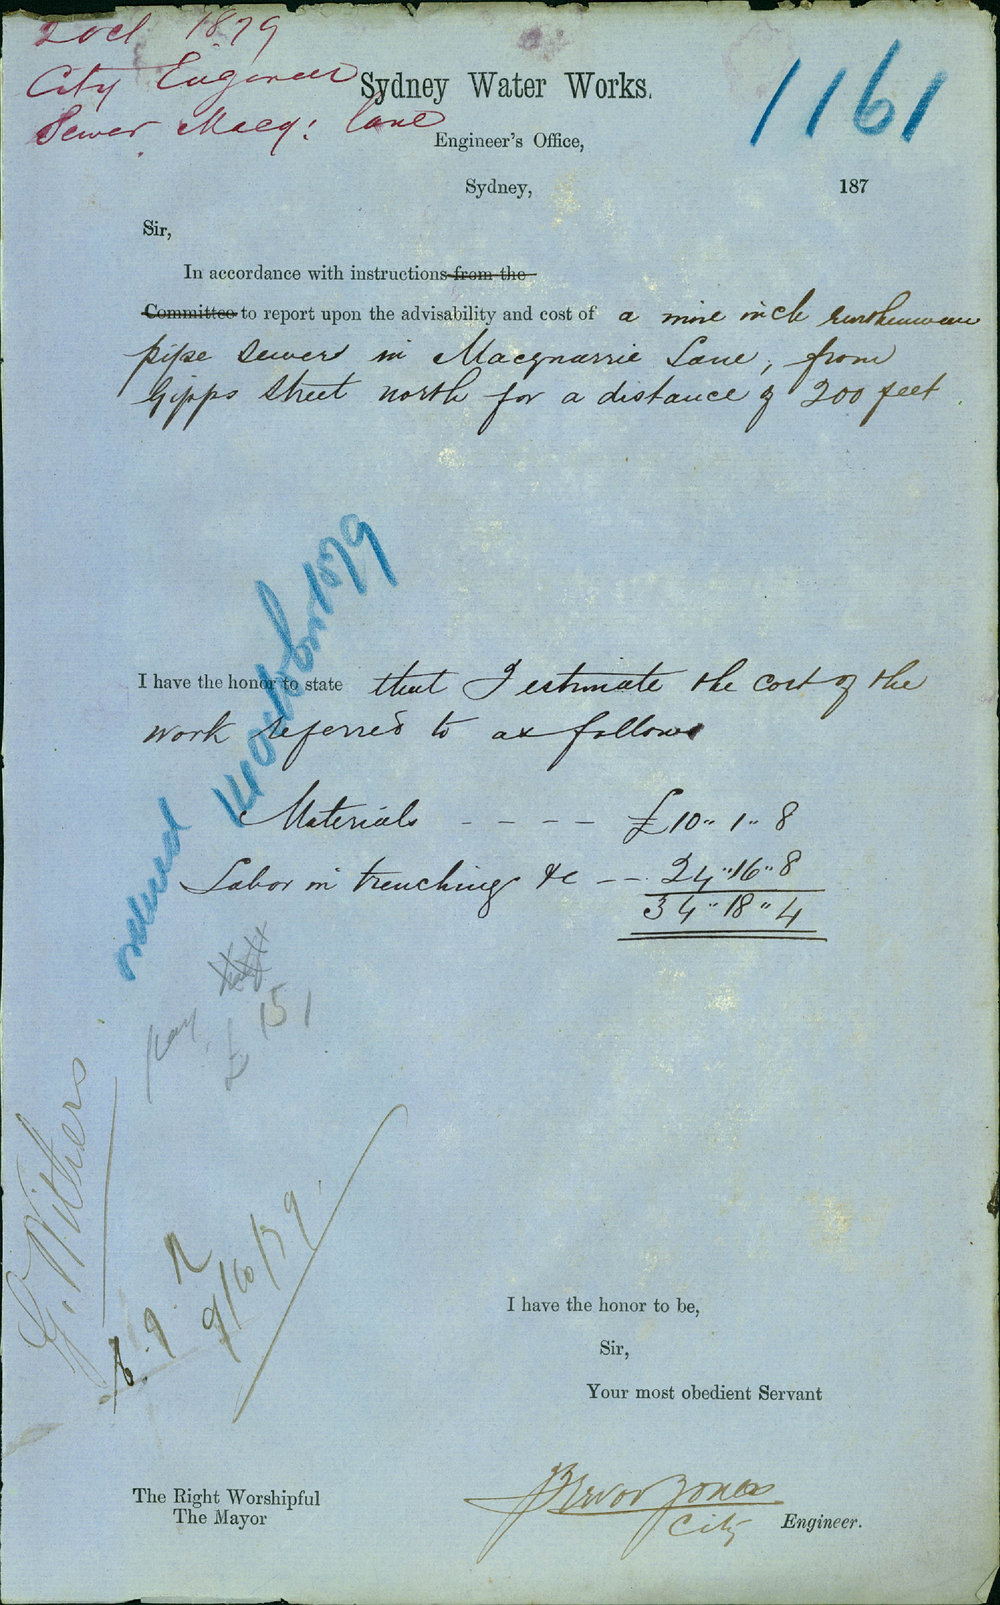 2 Oct 1879
City Engineer
Sewer Macq: Lane
1161
Sydney Water Works.
Engineer's Office,
Sydney, 187
Sir,
In accordance with instructions from the
Committee to report upon the advisability and cost of a nine inch earthenware
pipe sewer in Macquarrie Lane, from
Gipps Street north for a distance of 200 feet
I have the honor to state that I estimate the cost of the
work referred to as follows
Materials - - - - £10" 1" 8
Labor in trenching &c - - 24"16"8
34"18"4
ordered 14 October 1879
£ 151
G. Withers
9/10/79
I have the honor to be,
Sir,
Your most obedient Servant
The Right Worshipful
The Mayor
Trevor Jones
City Engineer.